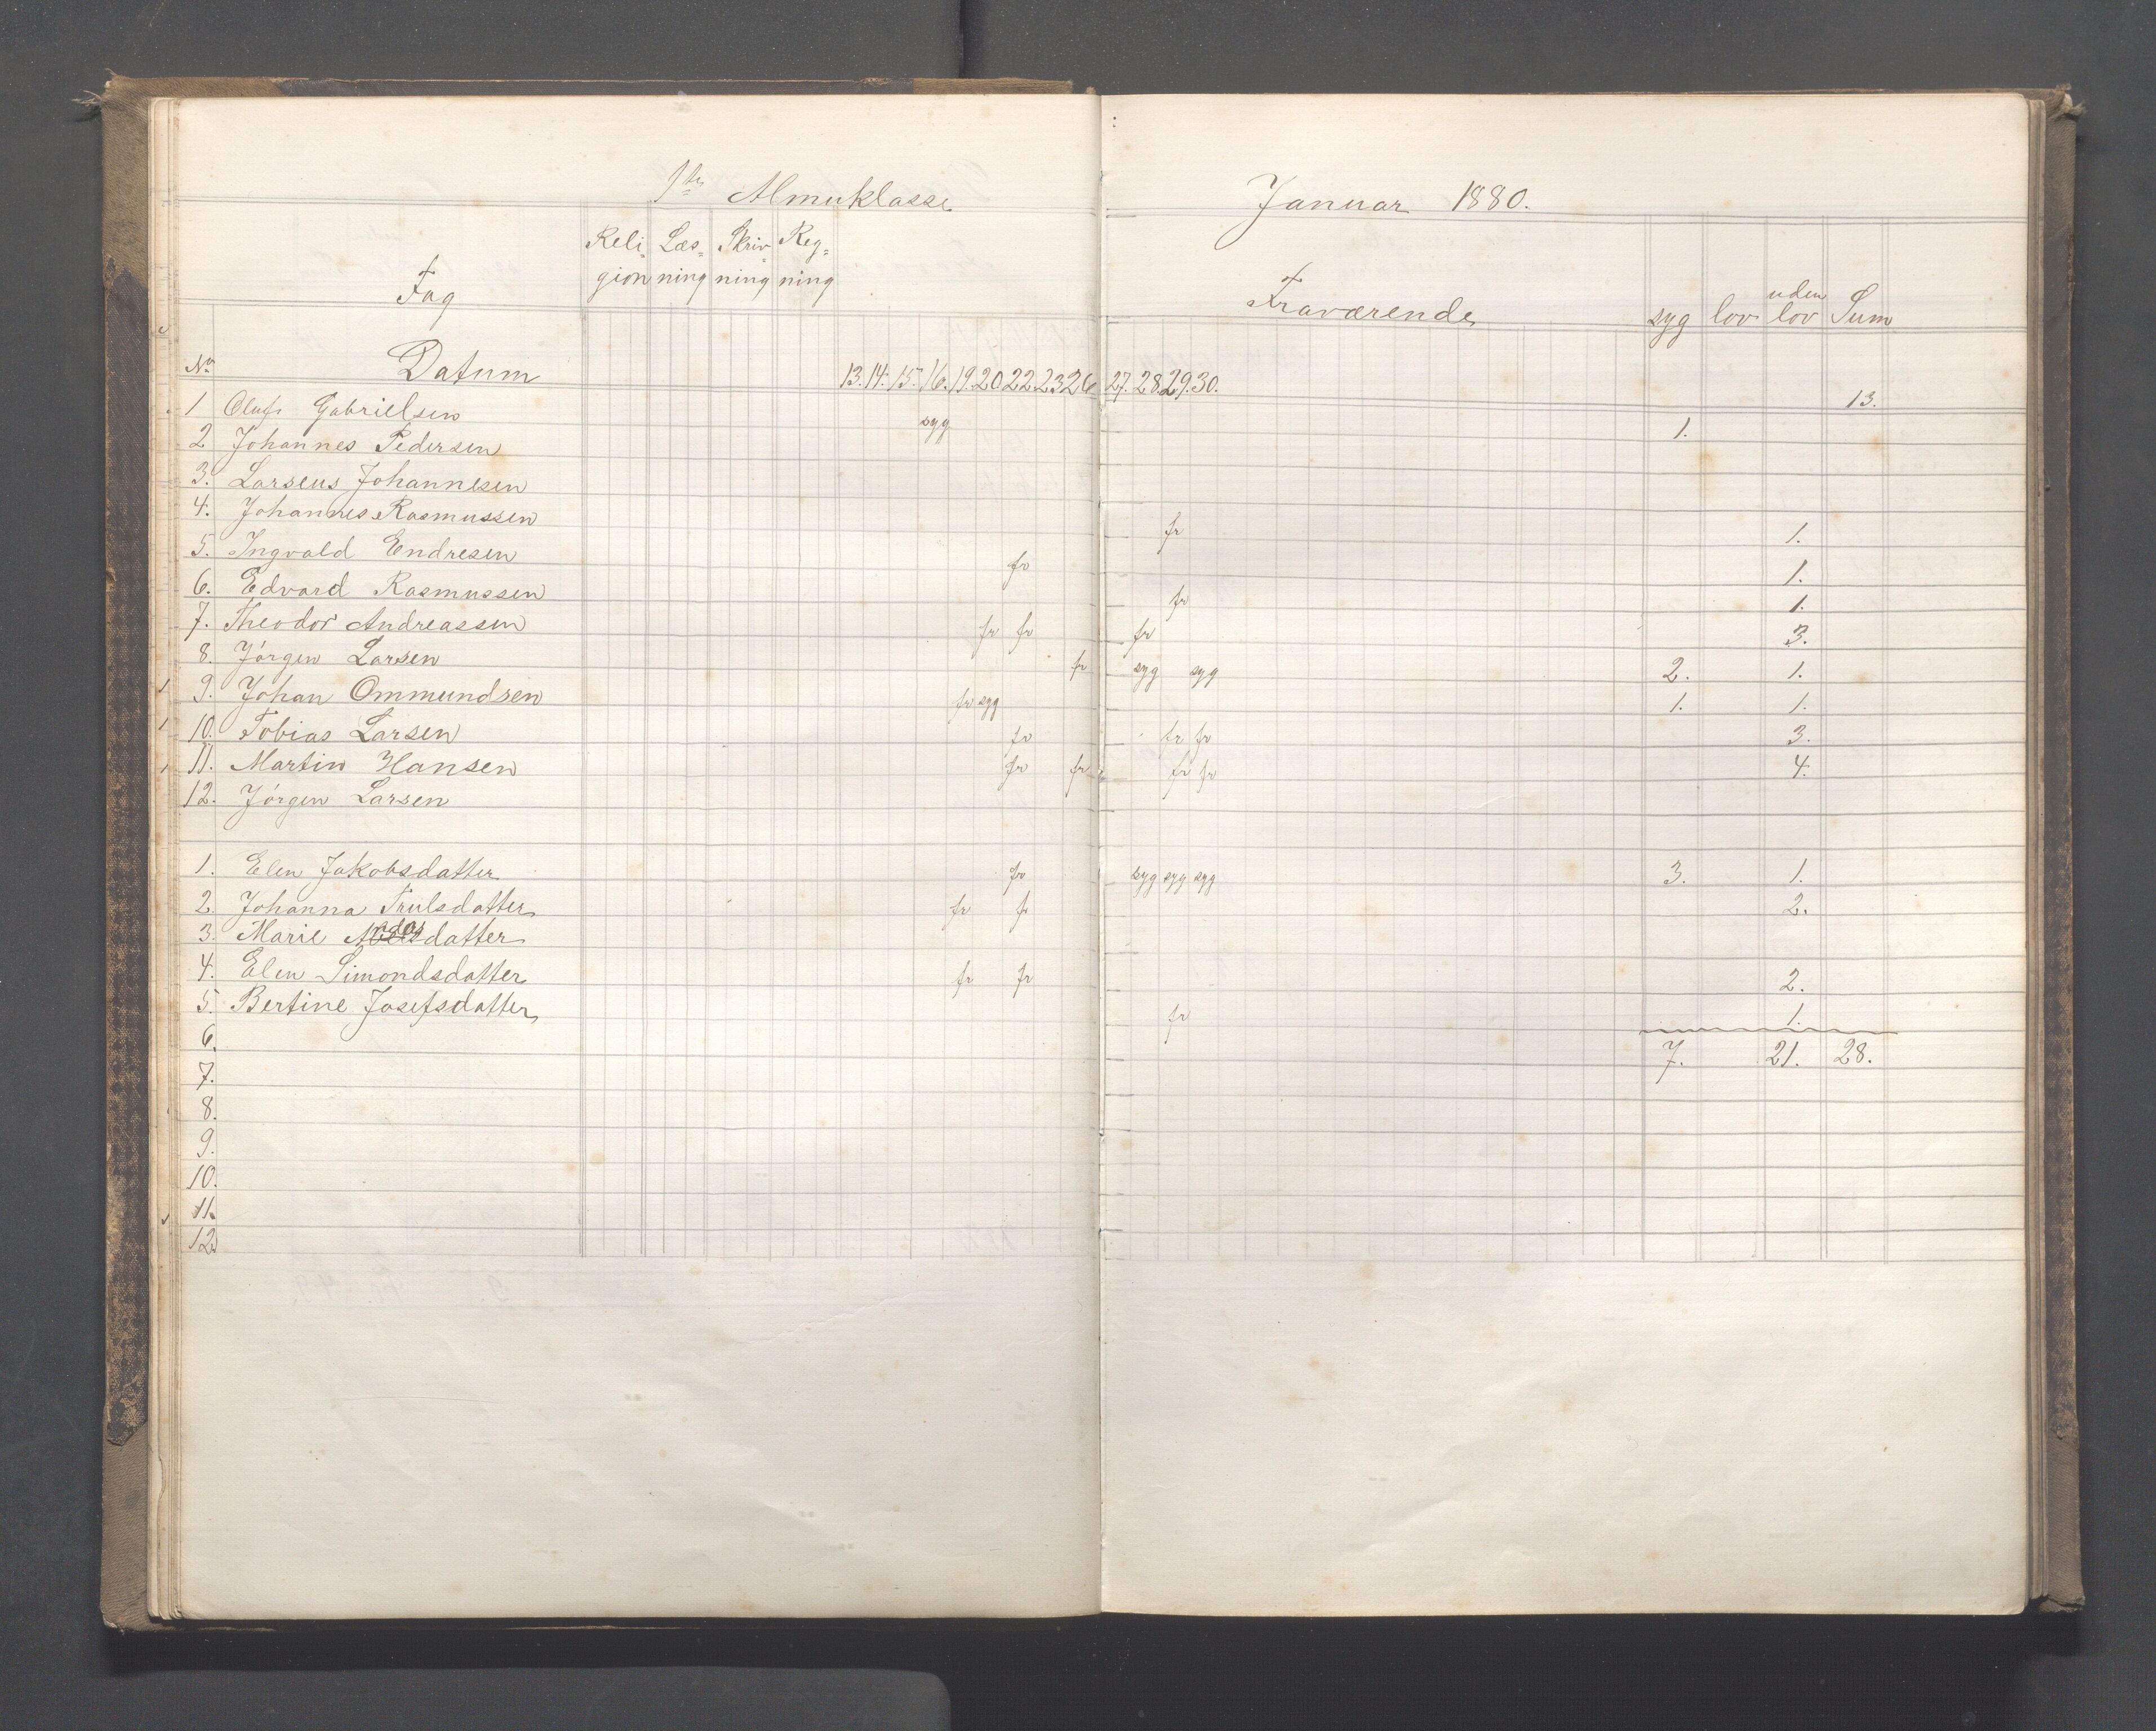 1ste Almuklasse Januar 1880.
Reli- Læs- Skriv- Reg-
Fag gion ning ning ning Fraværende syg lov uden lov Sum
No. Datum 13. 14. 15. 16. 19. 20. 22. 23. 26. 27. 28. 29. 30.
1 Oluf Gabrielsen syg 1. 13.
2 Johannes Pedersen
3. Larseus Johannesen
4. Johannes Rasmussen fr 1.
5. Ingvald Endresen fr 1.
6. Edvard Rasmussen fr 1.
7. Theodor Andreassen fr fr fr 3.
8. Jørgen Larsen fr syg syg 2. 1.
9. Johan Ommundsen fr syg 1. 1.
10. Tobias Larsen fr fr fr 3.
11. Martin Hansen fr fr fr fr 4.
12. Jørgen Larsen
1. Elen Jakobsdatter fr syg syg syg 3. 1.
2. Johanna Trulsdatter fr fr 2.
3. Marie datter
4. Elen Simondsdatter fr fr 2.
5. Bertine Josefsdatter fr 1.
6. 7. 21. 28.
7.
8.
9.
10.
11.
12.